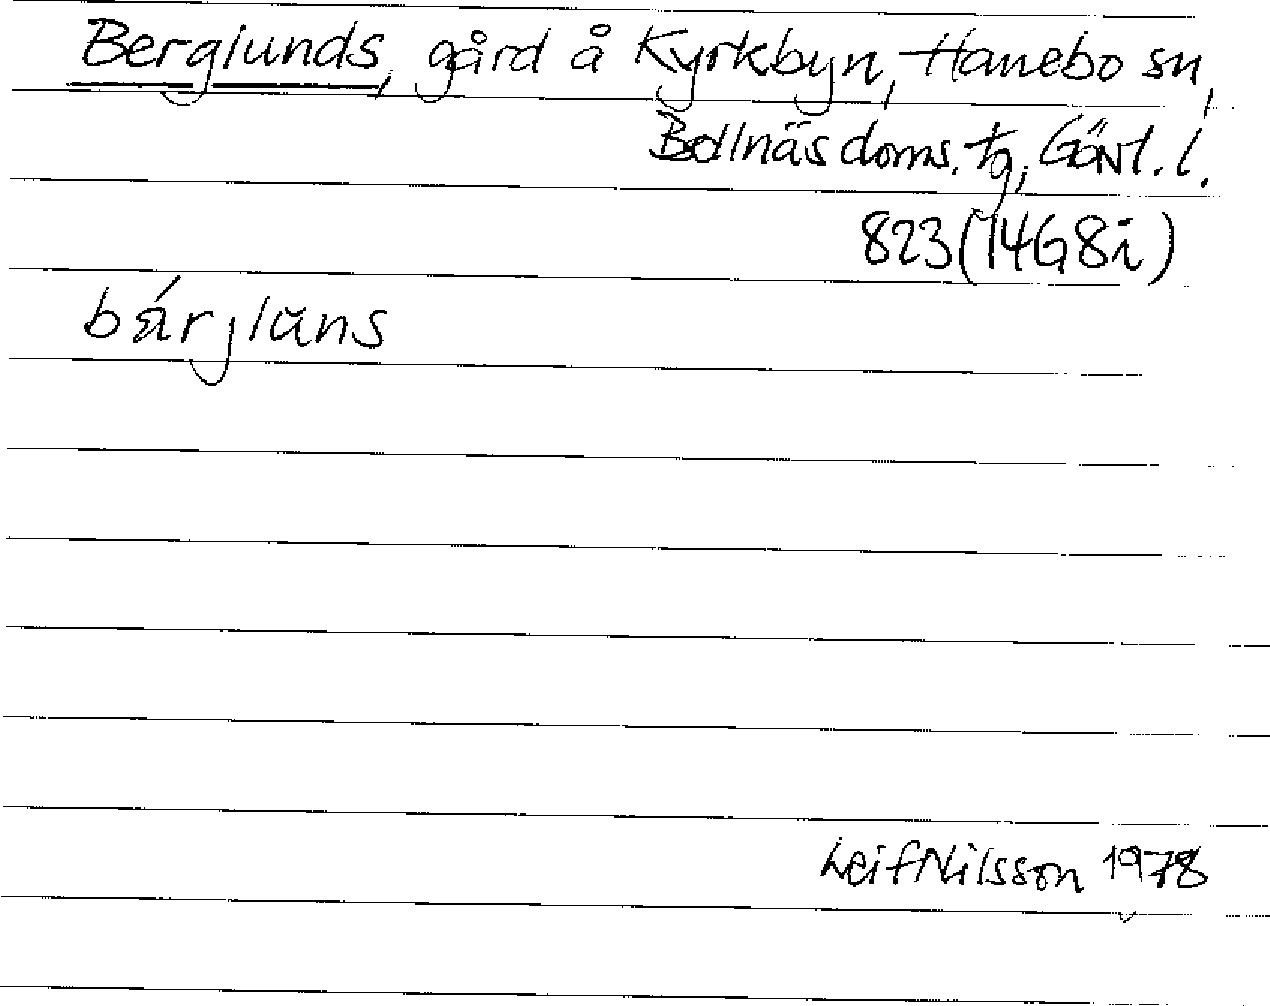 Berglunds, gård å Kyrkbyn, Hanebo sn,
Bollnäs doms. tg, Gävl. l.
823 (14G8i)
bä́rjlŭns
Leif Nilsson 1978